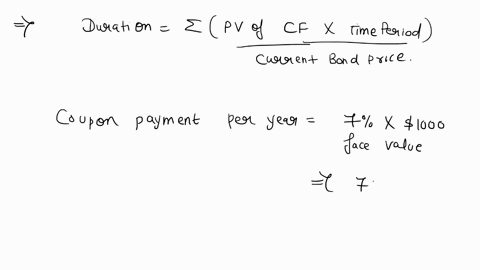 ⇒ Duration = Σ (PV of CF X Time Period)
Current Bond price.
Coupon payment per year = 7% X $1000
face value
⇒ 7